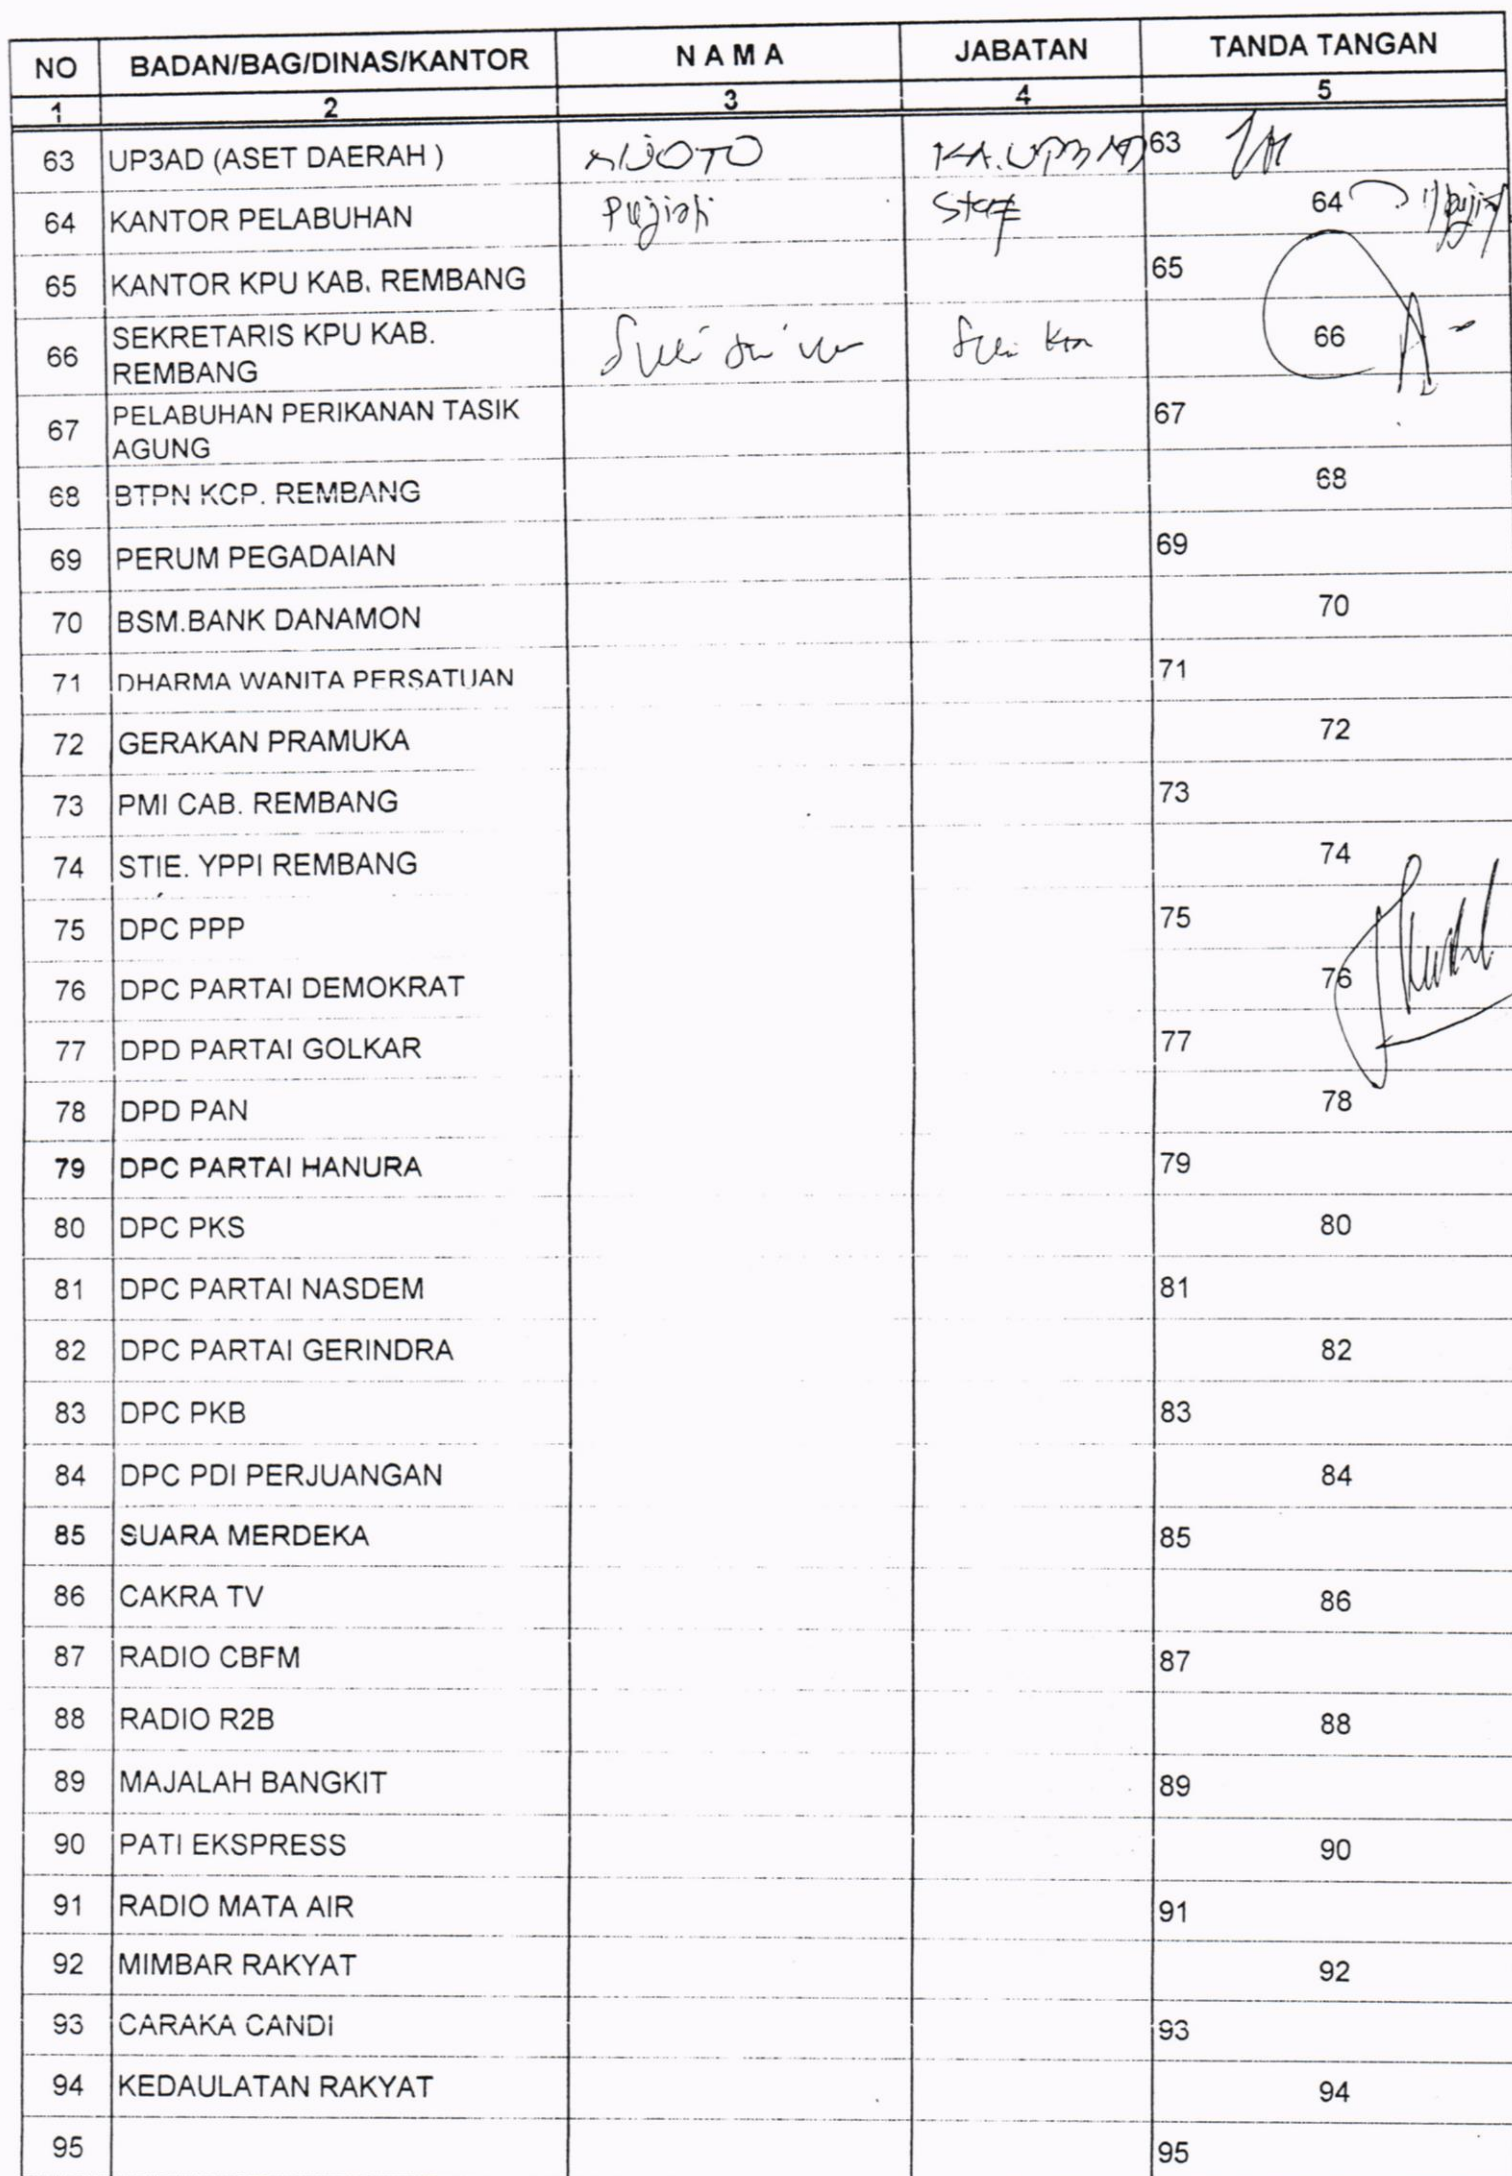 NO BADAN/BAG/DINAS/KANTOR N A M A JABATAN TANDA TANGAN
1 2 3 4 5
63 UP3AD (ASET DAERAH ) 63
64 KANTOR PELABUHAN Pujiati Staf 64
65 KANTOR KPU KAB. REMBANG 65
66 SEKRETARIS KPU KAB. 66
REMBANG
67 PELABUHAN PERIKANAN TASIK 67
AGUNG
68 BTPN KCP. REMBANG 68
69 PERUM PEGADAIAN 69
70 BSM.BANK DANAMON 70
71 DHARMA WANITA PERSATUAN 71
72 GERAKAN PRAMUKA 72
73 PMI CAB. REMBANG 73
74 STIE. YPPI REMBANG 74
75 DPC PPP 75
76 DPC PARTAI DEMOKRAT 76
77 DPD PARTAI GOLKAR 77
78 DPD PAN 78
79 DPC PARTAI HANURA 79
80 DPC PKS 80
81 DPC PARTAI NASDEM 81
82 DPC PARTAI GERINDRA 82
83 DPC PKB 83
84 DPC PDI PERJUANGAN 84
85 SUARA MERDEKA 85
86 CAKRA TV 86
87 RADIO CBFM 87
88 RADIO R2B 88
89 MAJALAH BANGKIT 89
90 PATI EKSPRESS 90
91 RADIO MATA AIR 91
92 MIMBAR RAKYAT 92
93 CARAKA CANDI 93
94 KEDAULATAN RAKYAT 94
95 95